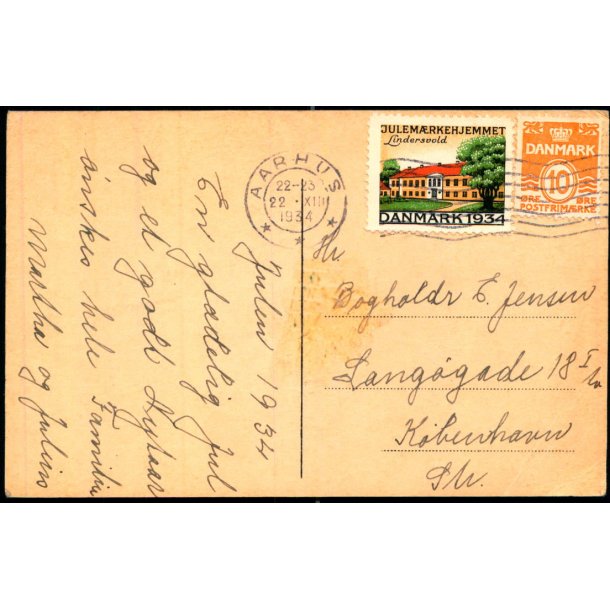 Julen 1934
En glædelig Jul
og et godt Nytaar
ønskes hele Familien
Martha og Julius
AARHUS
22-23
22 · XII
1934
JULEMÆRKEHJEMMET
Lindersvold
DANMARK 1934
DANMARK
10
ØRE ØRE
POSTFRIMÆRKE
Hr
Bogholdr E. Jensen
Langøgade 18 I
København
Str.